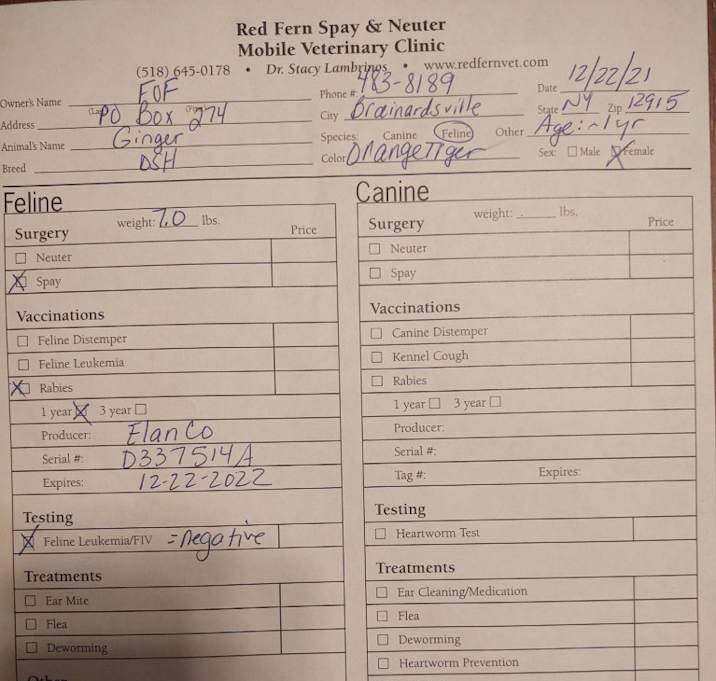 Red Fern Spay & Neuter
Mobile Veterinary Clinic
(518) 645-0178 • Dr. Stacy Lambrinos • www.redfernvet.com
Owner's Name FOF Phone #: 483-8189 Date 12/22/21
Address PO Box 274 City Brainardsville State NY Zip 12915
Animal's Name Ginger Species: Canine Feline Other Age: ~1yr
Breed DSH Color Orange Tiger Sex: Male Female
Feline
Surgery weight: 7.0 lbs. Price
Neuter
Spay
Vaccinations
Feline Distemper
Feline Leukemia
Rabies
1 year 3 year
Producer: Elanco
Serial #: D337514A
Expires: 12-22-2022
Testing
Feline Leukemia/FIV = negative
Treatments
Ear Mite
Flea
Deworming
Other
Canine
Surgery weight: ______ lbs. Price
Neuter
Spay
Vaccinations
Canine Distemper
Kennel Cough
Rabies
1 year 3 year
Producer:
Serial #:
Tag #: Expires:
Testing
Heartworm Test
Treatments
Ear Cleaning/Medication
Flea
Deworming
Heartworm Prevention